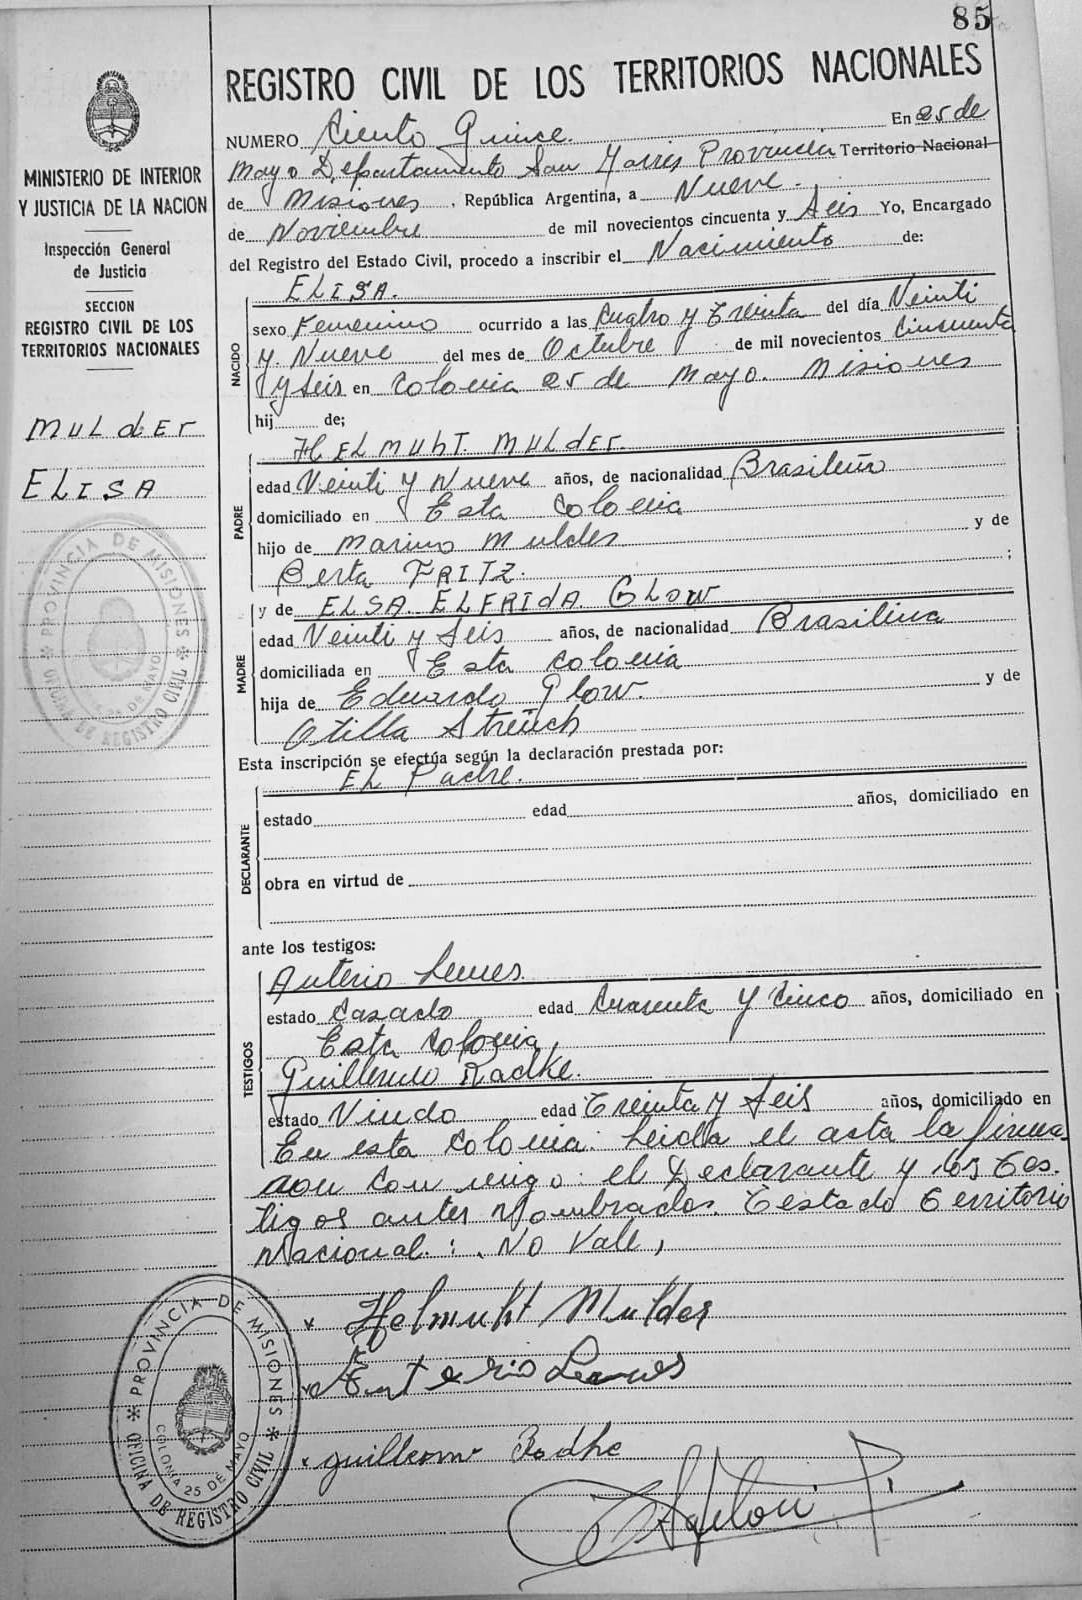 85
REGISTRO CIVIL DE LOS TERRITORIOS NACIONALES
MINISTERIO DE INTERIOR
Y JUSTICIA DE LA NACION
Inspección General
de Justicia
SECCION
REGISTRO CIVIL DE LOS
TERRITORIOS NACIONALES
MULdEr
ELISA
PROVINCIA DE MISIONES
OFICINA DE REGISTRO CIVIL
25 DE MAYO
NUMERO Ciento Quince. En 25 de
Mayo Departamento San Provincia Territorio Nacional
de Misiones, República Argentina, a Nueve.
de Noviembre de mil novecientos cincuenta y Seis Yo, Encargado
del Registro del Estado Civil, procedo a inscribir el Nacimiento de:
NACIDO
ELISA.
sexo Femenino ocurrido a las Cuatro y Treinta del día Veinti
y. Nueve del mes de Octubre de mil novecientos Cincuenta
y Seis en Colonia 25 de Mayo. Misiones
hij de;
PADRE
HELMUhT. MULdEr.
edad Veinti y Nueve años, de nacionalidad Brasileño
domiciliado en Esta Colonia
hijo de Marino Mulder y de
Berta FRITZ. ;
MADRE
y de ELSA ELFRIdA. GLOW
edad Veinti y Seis años, de nacionalidad Brasilina
domiciliada en Esta Colonia
hija de Eduardo Glow. y de
Otilla
Esta inscripción se efectúa según la declaración prestada por:
EL Padre.
DECLARANTE
estado edad años, domiciliado en
obra en virtud de
ante los testigos:
TESTIGOS
Anterio Lemes
estado Casado edad Cuarenta y Cinco años, domiciliado en
Esta Colonia
Guillermo Radke.
estado Viudo edad Treinta y Seis años, domiciliado en
En esta Colonia: Leida el acta la firma
ron con migo: el Declarante y los Tes.
tigos antes Nombrados. Testado Territorio
Nacional: No Vale,
Helmuht Mulder
Anterio Lemes
guillerm Radke
PROVINCIA DE MISIONES
OFICINA DE REGISTRO CIVIL
COLONIA 25 DE MAYO